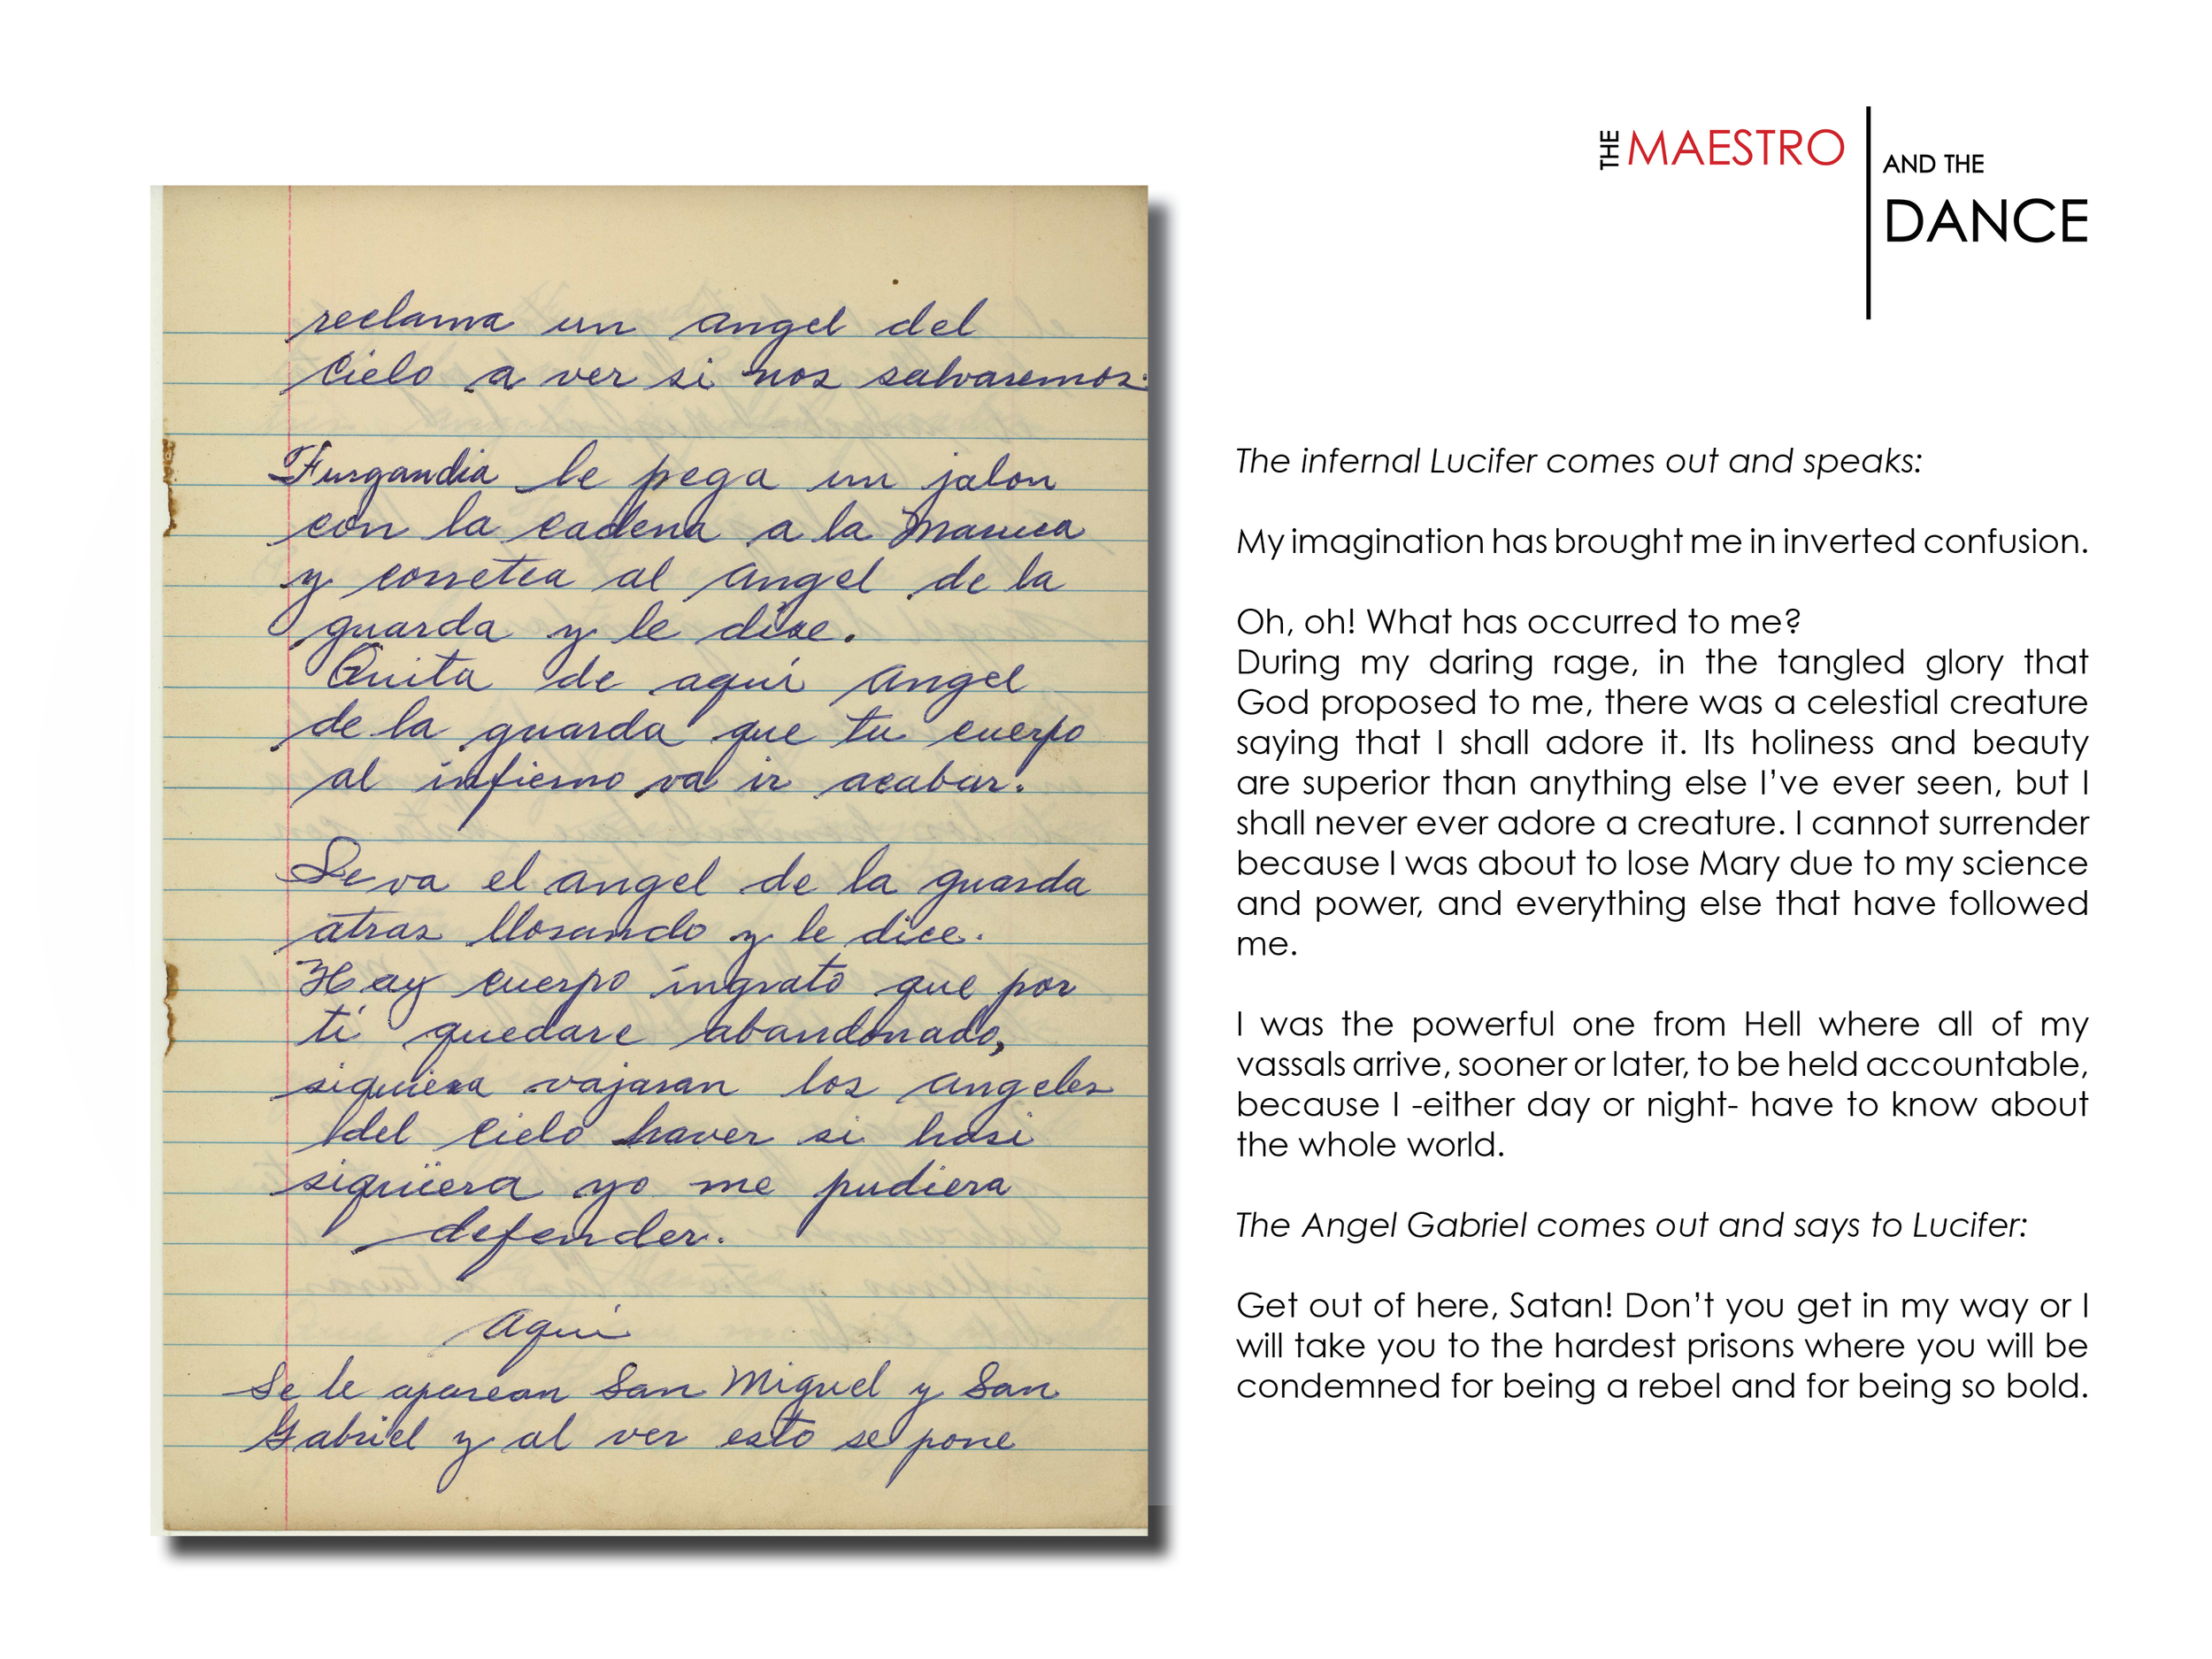 THE MAESTRO
AND THE
DANCE
reclama un angel del
cielo a ver si nos salvaremos.
Furgandia le pega un jalon
con la cadena a la Maruca
y corretea al angel de la
guarda y le dise.
Quita de aquí angel
de la guarda que tu cuerpo
al infierno va ir acabar.
Se va el angel de la guarda
atras llorando y le dice.
Hay cuerpo ingrato que por
ti quedare abandonado,
siquiera vajaran los angeles
del cielo haver si hasi
siquiera yo me pudiera
defender.
Aqui
Se le aparean San Miguel y San
Gabriel y al ver esto se pone
The infernal Lucifer comes out and speaks:
My imagination has brought me in inverted confusion.
Oh, oh! What has occurred to me?
During my daring rage, in the tangled glory that
God proposed to me, there was a celestial creature
saying that I shall adore it. Its holiness and beauty
are superior than anything else I’ve ever seen, but I
shall never ever adore a creature. I cannot surrender
because I was about to lose Mary due to my science
and power, and everything else that have followed
me.
I was the powerful one from Hell where all of my
vassals arrive, sooner or later, to be held accountable,
because I -either day or night- have to know about
the whole world.
The Angel Gabriel comes out and says to Lucifer:
Get out of here, Satan! Don’t you get in my way or I
will take you to the hardest prisons where you will be
condemned for being a rebel and for being so bold.